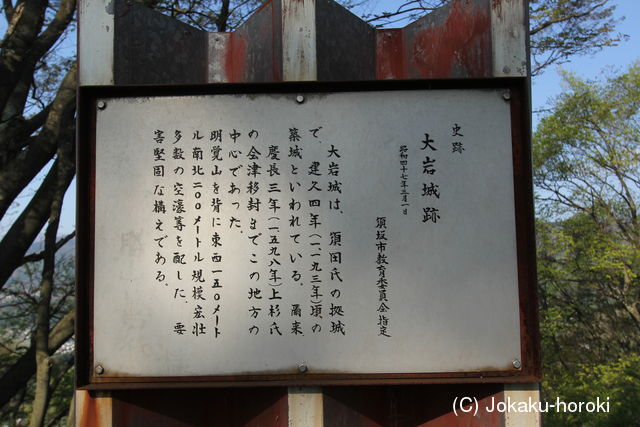 史跡
大岩城跡
昭和四十七年三月一日
須坂市教育委員会指定
大岩城は、須田氏の拠城
で、建久四年(一一九三年)頃の
築城といわれている。爾来
慶長三年(一五九八年)上杉氏
の会津移封までこの地方の
中心であった。
明覚山を背に東西一五〇メート
ル南北二〇〇メートル規模宏壮
多数の空濠等を配した、要
害堅固な構えである。
(C) Jokaku-horoki